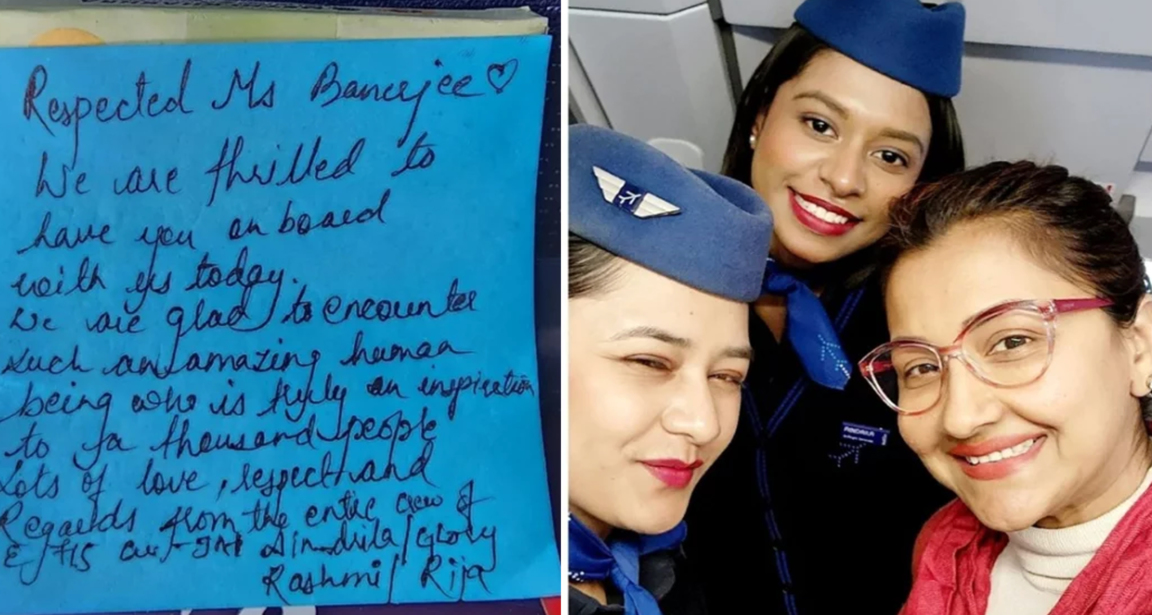 Respected Ms Banerjee
We are thrilled to
have you on board
with us today.
We are glad to encounter
such an amazing human
being who is truly an inspiration
to fa thousand people
Lots of love, respect and
Regards from the entire crew of
Sindrila/Glory
Rashmi/ Rija